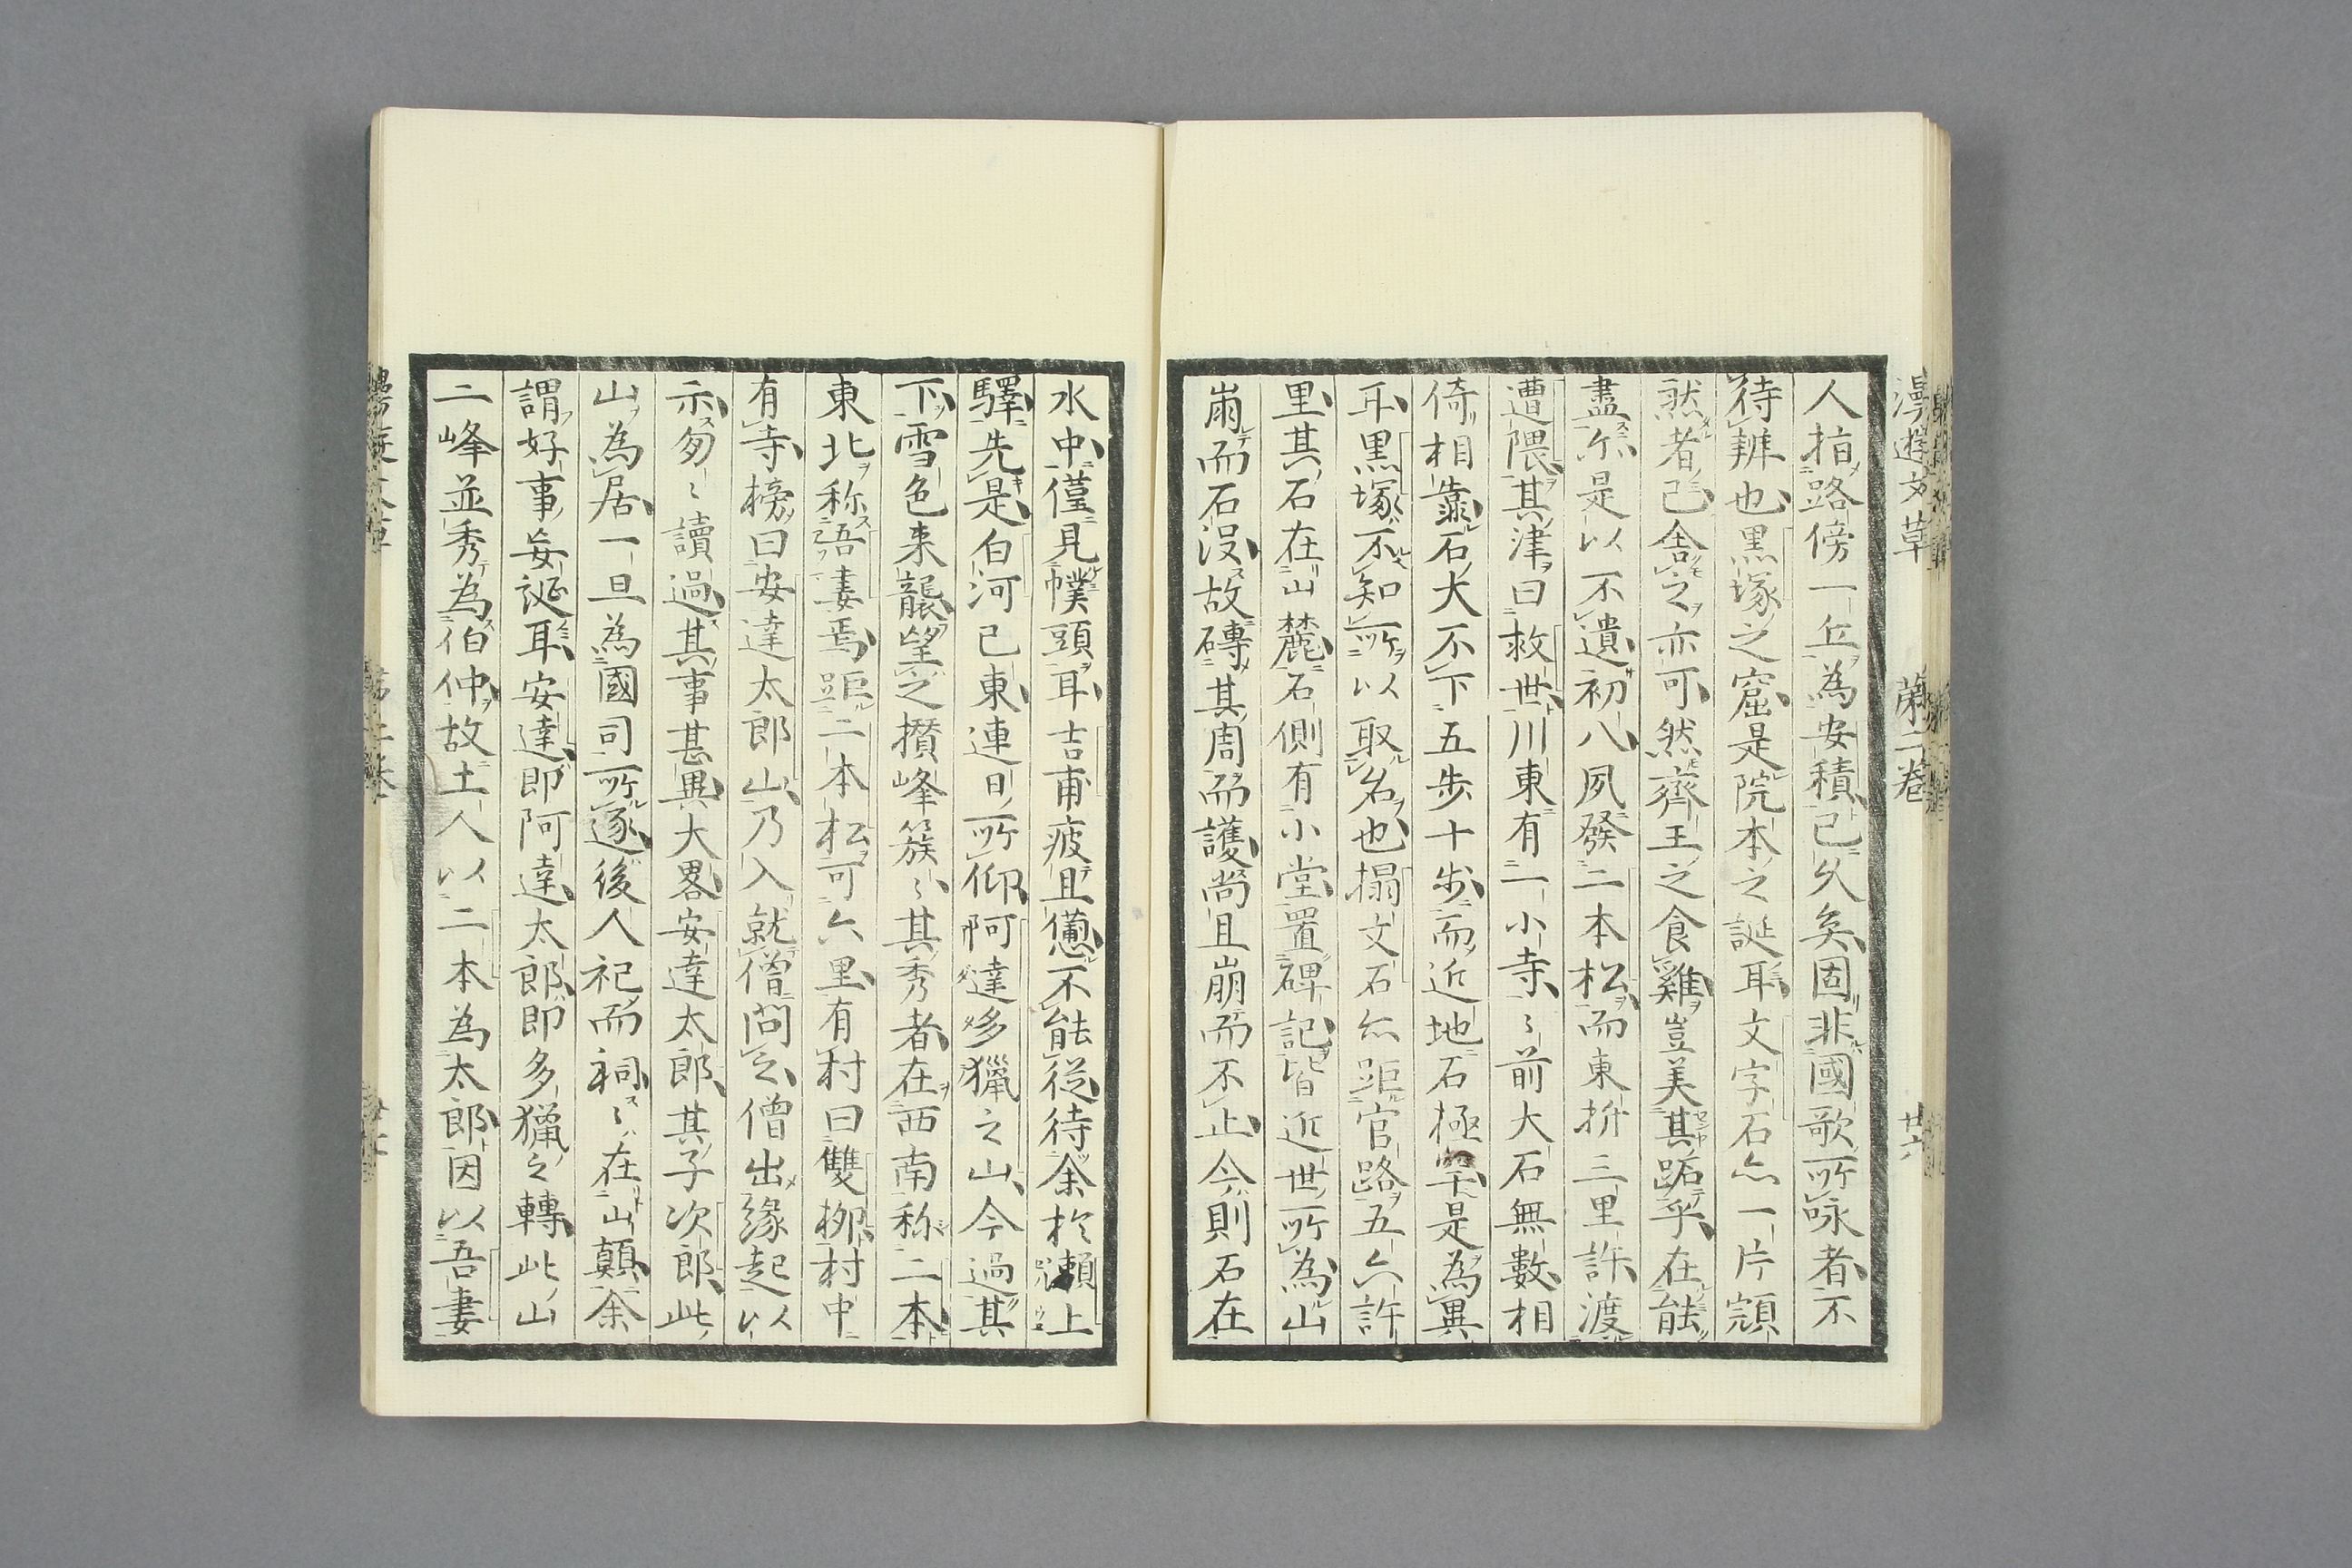 人指路傍一丘為安積已久矣固非國歌所咏者不
待辨也黒塚之窟是院本之誕耳文字石亦一片頑
然者已舎之亦可然齊王之食雞豈美其跖乎在能
盡尓是以不遺初八夙發二本松而東折三里許渡
遭隈其津曰救世川東有一小寺〻前大石無數相
倚相靠石大不下五歩十歩而近地石極罕是為異
耳黒塚不知所以取名也搨文石亦距官路五六許
里其石在山麓石側有小堂置碑記皆近世所為山
崩而石没故磚其周而護尚且崩而不止今則石在
水中僅見幞頭耳吉甫疲且憊不能従待余於瀬上
驛先是白河已東連日所仰阿達多獵之山今過其
下雪色来襲望之攅峰簇〻其秀者在西南称二本
東北称語妻焉距二本松可六里有村曰雙栁村中
有寺榜曰安達太郎山乃入就僧問之僧出縁起以
示匆〻讀過其事甚異大畧安達太郎其子次郎此
山為居一旦為國司所逐後人祀而祠〻在山顛余
謂好事妄誕耳安達即阿達太郎即多獵之轉此山
二峰並秀為伯仲故土人以二本為太郎因以吾妻
漫遊文草 第二巻 廿六